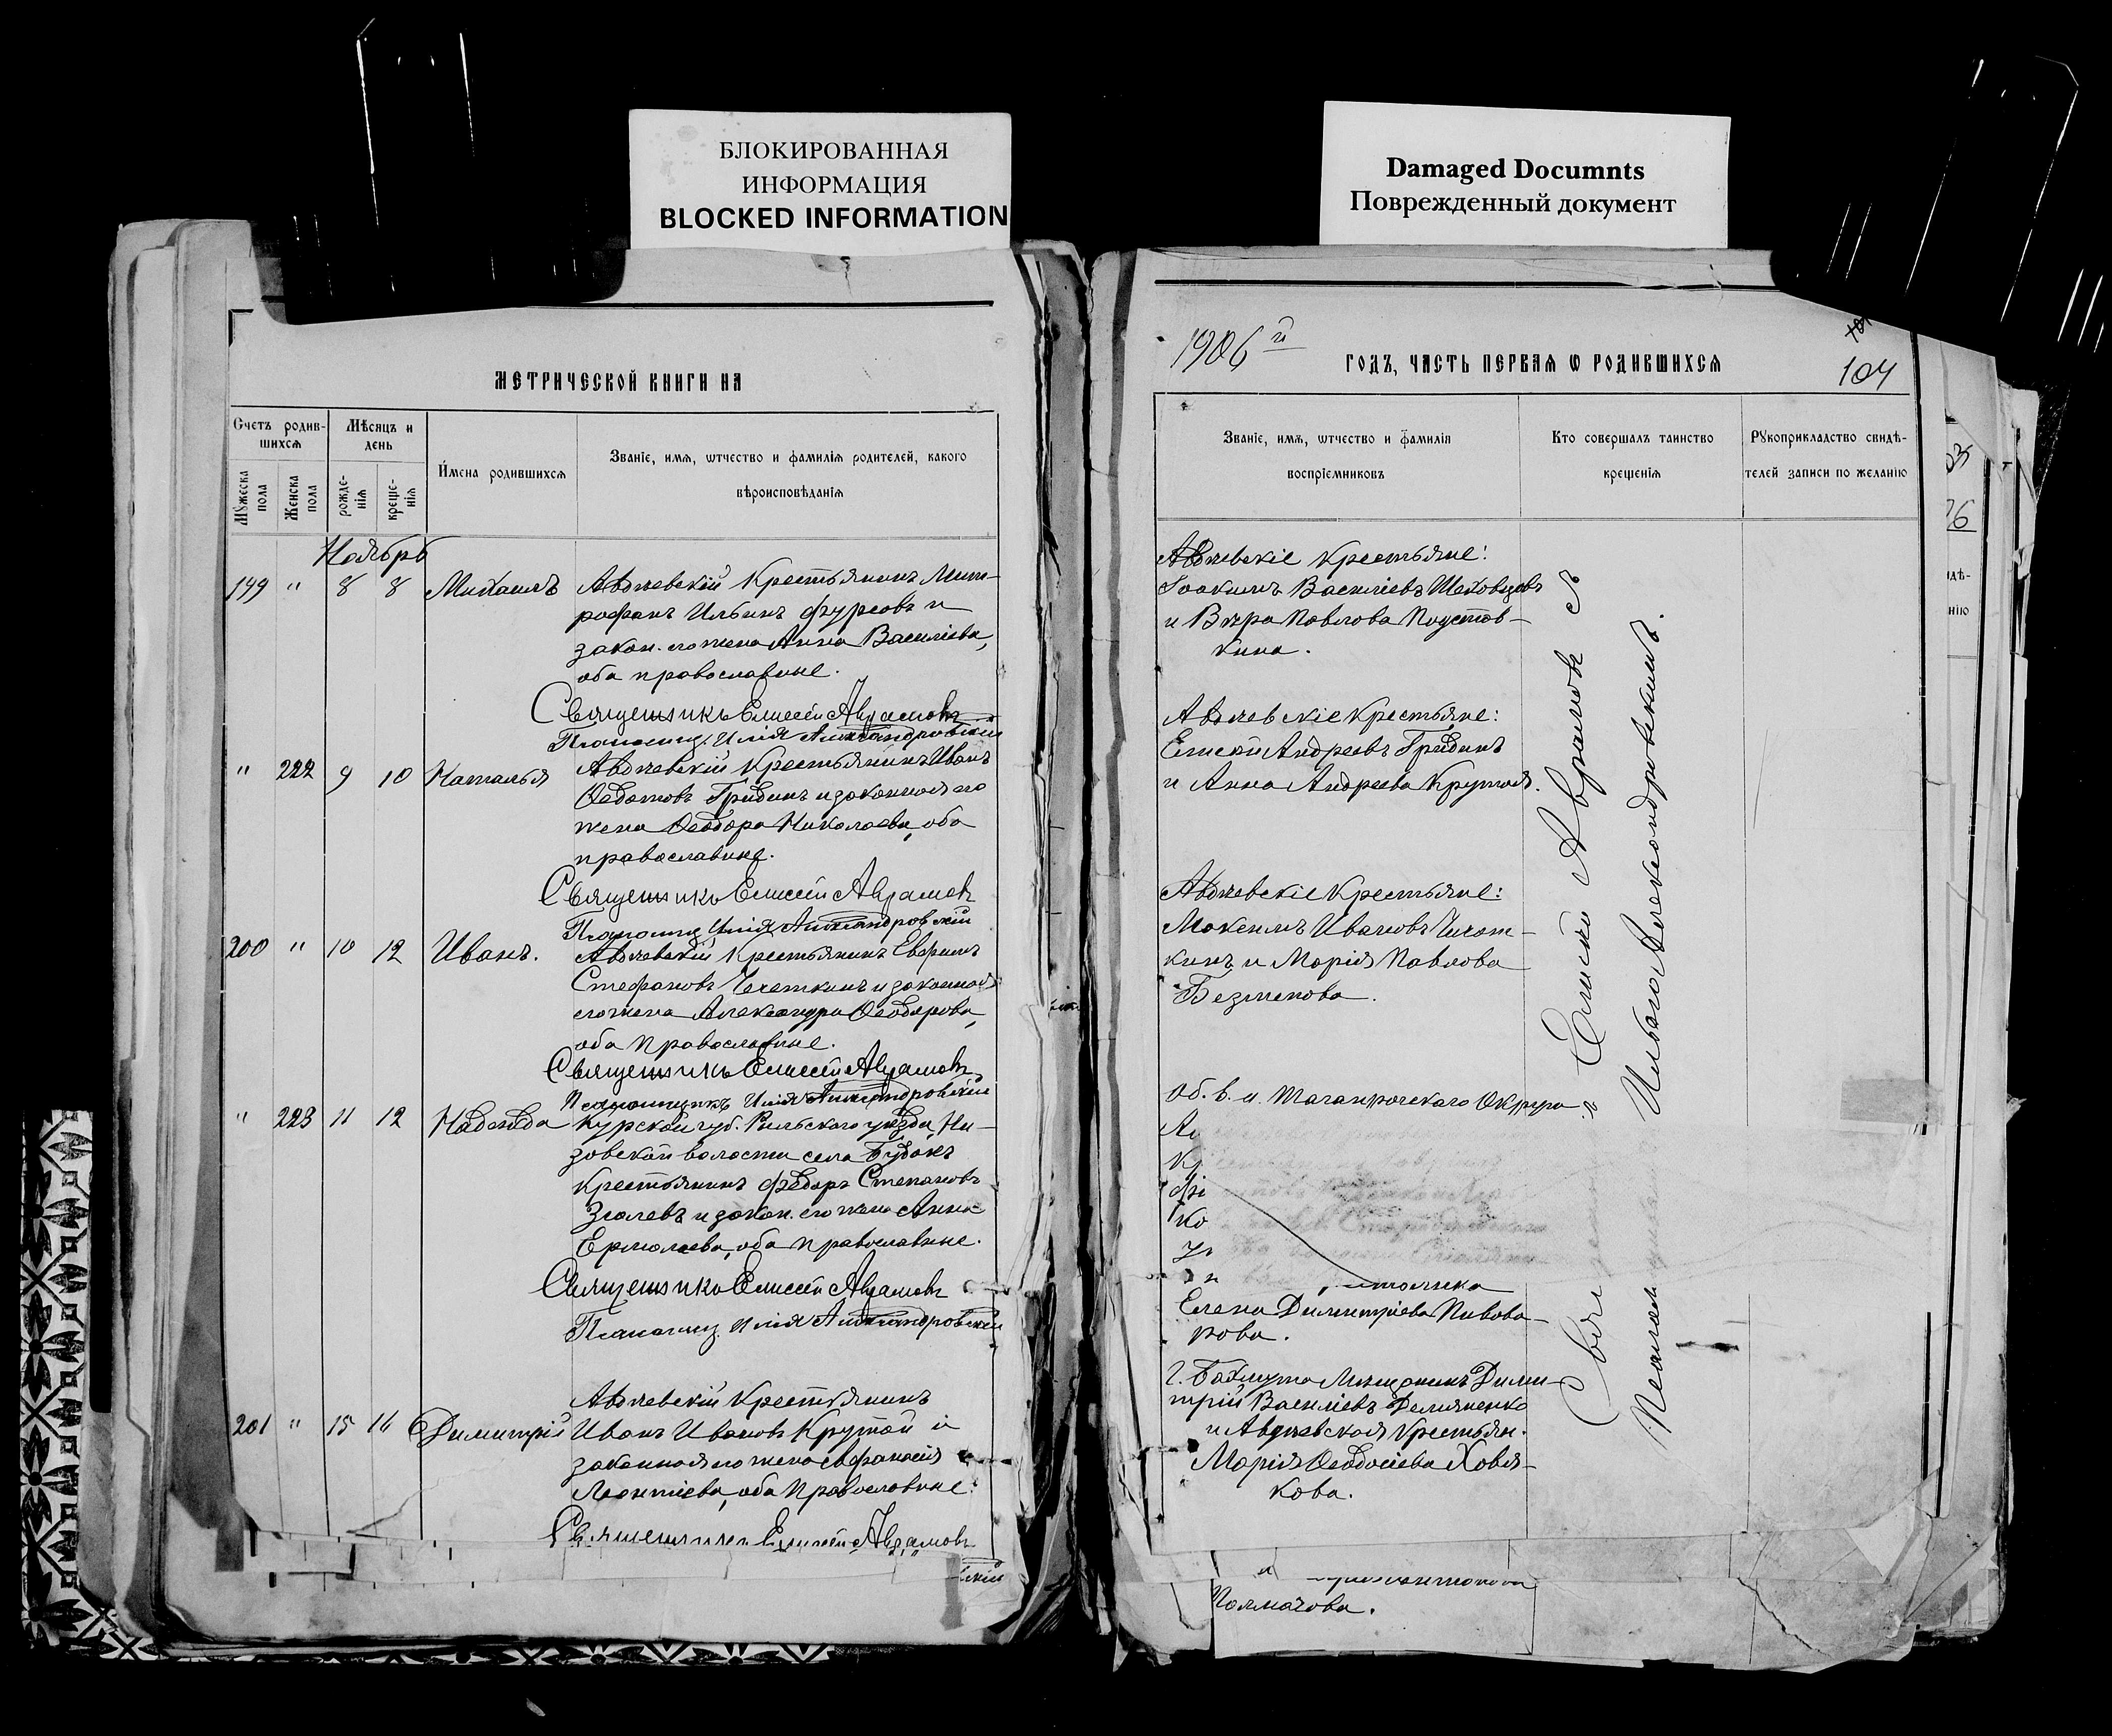 БЛОКИРОВАННАЯ
ИНФОРМАЦИЯ
BLOCKED INFORMATION
Damaged Documnts
Поврежденный документ
МЕТРИЧЕСКОЙ КНИГИ НА
Счетъ родив-
шихся
Мѣсяцъ и
день
Мужеска
пола
Женска
пола
рожде-
нія
креще-
нія
Имена родившихся
Званіе, имя, ѿтчество и фамилія родителей, какого
вѣроисповѣданія
Ноябрь
199 " 8 8 Михаилъ Авдѣевскій Крестьянинъ Мит-
рофанъ Ильинъ Фурсовъ и
закон. его жена Анна Василіева,
оба православные.
Священникъ Елисей Авраамовъ
Псаломщ. Илія Александровскій
" 222 9 10 Наталья Авдѣевскій Крестьянинъ Иванъ
Ѳедотовъ Гридинъ и законная его
жена Ѳеодора Николаева, оба
православные.
Священникъ Елисей Авраамовъ
Псаломщ. Илія Александровскій
200 " 10 12 Иванъ. Авдѣевскій Крестьянинъ Евфимъ
Стефановъ Чечеткинъ и законная
его жена Александра Ѳеодорова,
оба православные.
Священникъ Елисей Авраамовъ
Псаломщикъ Илія Александровскій
" 223 11 12 Надежда Курской губ. Рыльского уѣзда, Ни-
зовской волости села Будокъ
Крестьянинъ Федоръ Степановъ
и закон. его жена Анна
Ермолаева, оба православные.
Священникъ Елисей Авраамовъ
Псаломщ. Илія Александровскій
201 " 15 16 Димитрій Авдѣевскій Крестьянинъ
Иванъ Ивановъ Крутой и
законная его жена Афанасія
Леонтіева, оба православные.
Священникъ Елисей Авраамовъ
1906й
ГОДЪ, ЧАСТЬ ПЕРВАЯ Ѡ РОДИВШИХСЯ
104
Званіе, имя, ѿтчество и фамилія
воспріемниковъ
Кто совершалъ таинство
крещенія
Рукоприкладство свидѣ-
телей записи по желанію
Авдѣевскіе Крестьяне:
Іоакимъ Василіевъ Шеховцовъ
и Вѣра Павлова Пустов-
Авдѣевскіе Крестьяне:
Елисей Андреевъ Гридинъ
и Анна Андреева Крутая.
Авдѣевскіе Крестьяне:
Максимъ Ивановъ Чечет-
кинъ и Марія Павлова
Безменова.
Об. в. д. Таганрогскаго Округа
Елена Димитріева Пивова-
рова.
г. Бахмута Мѣщанинъ Дими-
трій Василіевъ Демяненко
и Авдѣевская Крестьян.
Марія Ѳеодосіева Ховя-
кова.
Елисей Авраамовъ съ
Александровскимъ.
Толмачова.